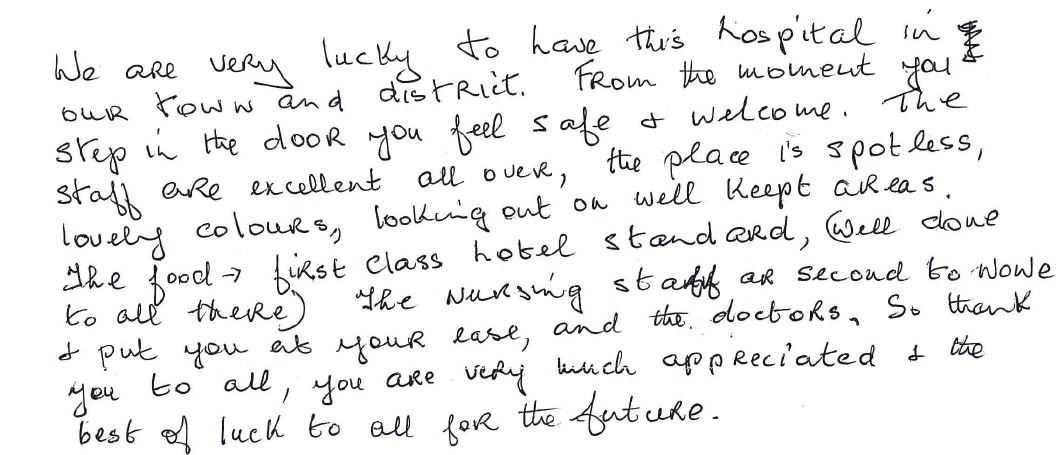 We are very lucky to have this hospital in
our town and district. From the moment you
step in the door you feel safe & welcome. The
staff are excellent all over, the place is spotless,
lovely colours, looking out on well keept areas.
The food → first class hotel standard, (Well done
to all there) The nursing staff ar second to none
& put you at your ease, and the doctors, So thank
you to all, you are very much appreciated & the
best of luck to all for the future.